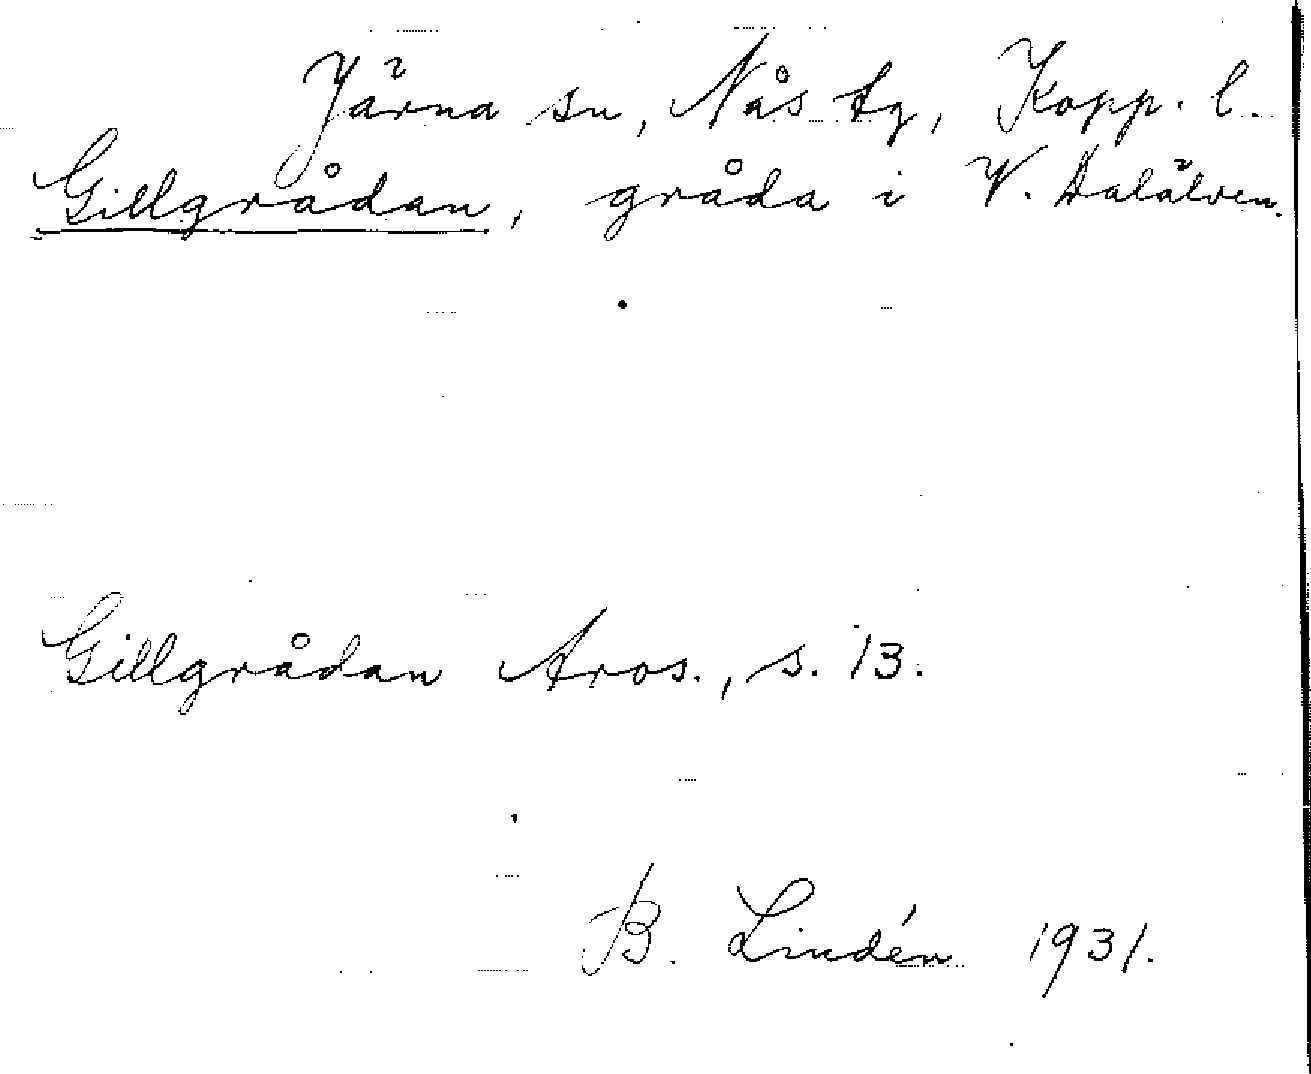 Järna sn, Nås tg, Kopp. l.
Gillgrådan, gråda i V. Dalälven.
Gillgrådan Aros., s. 13.
B. Lindén 1931.